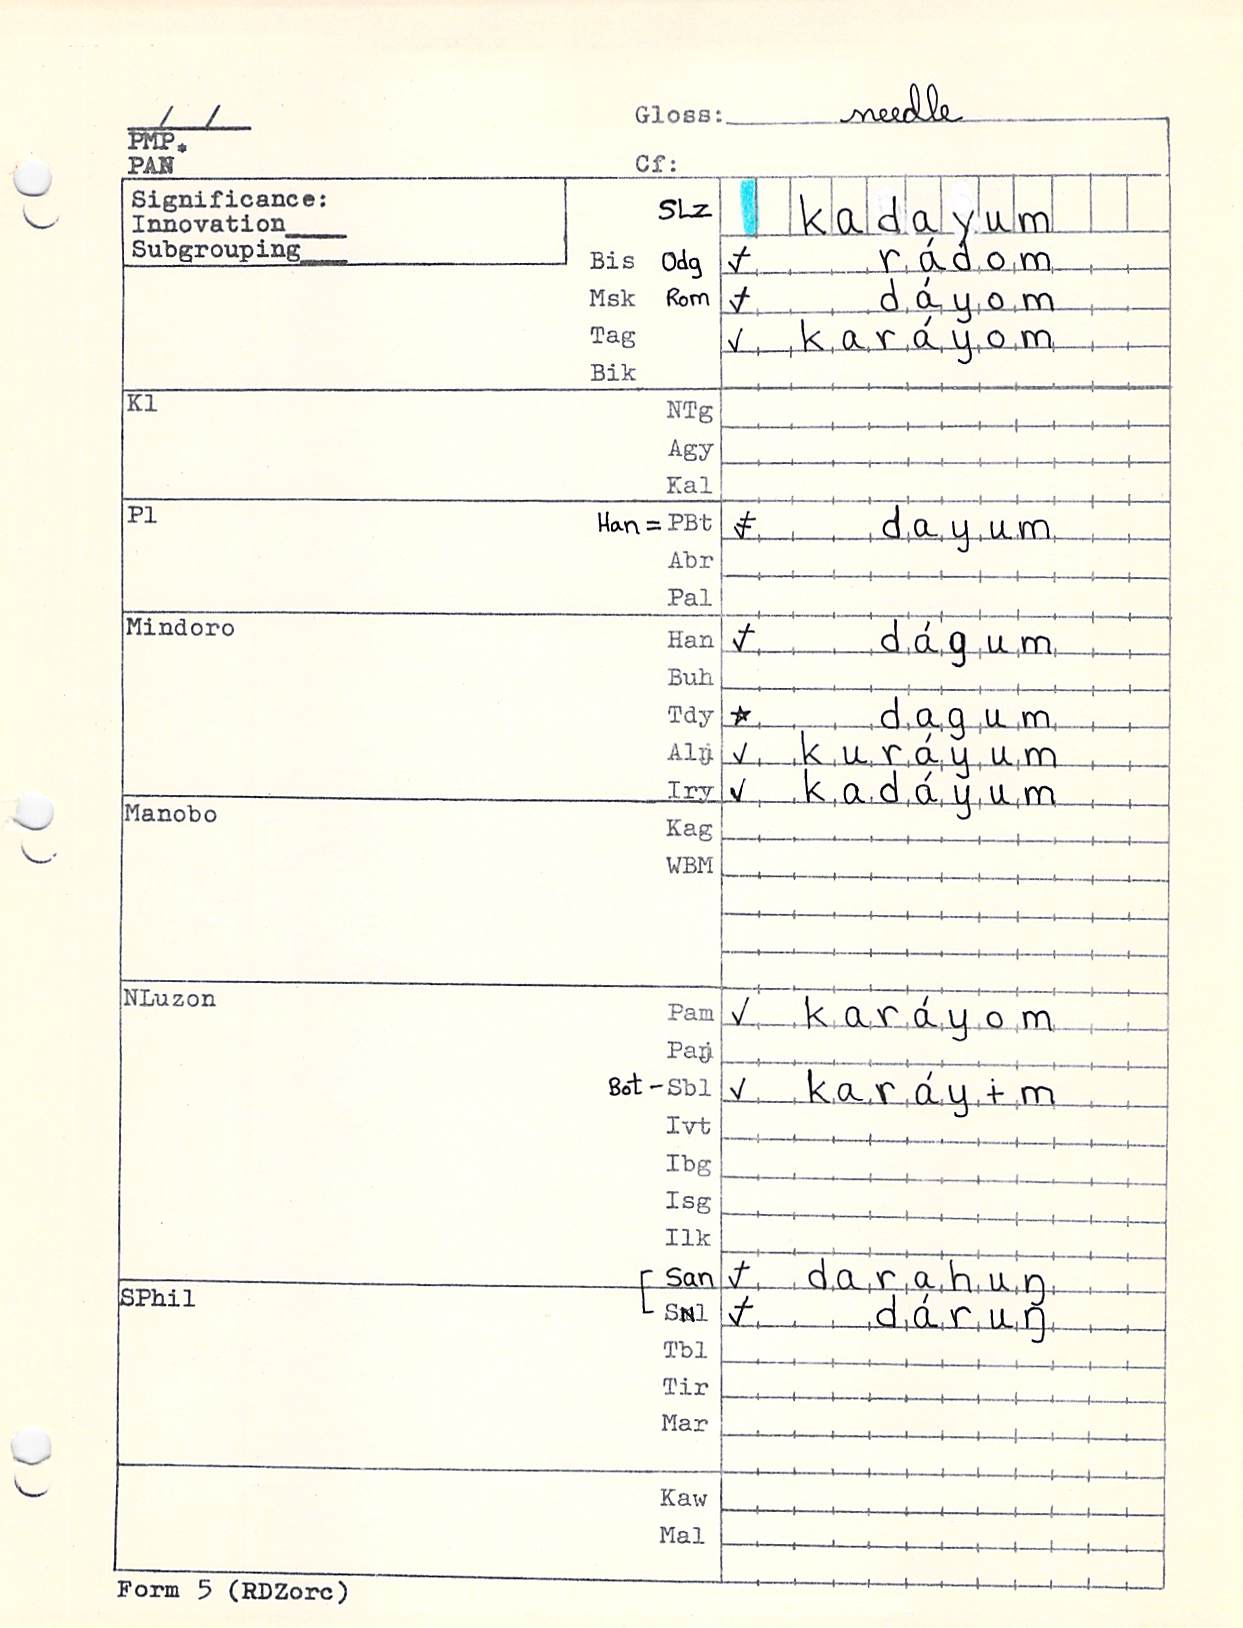 / /
Gloss: needle
PMP*
PAN
Cf:
Significance:
Innovation
Subgrouping
SLz kadayum
Bis Odg ɫ rádom
Msk Rom ɫ dáyom
Tag ✓ karáyom
Bik
Kl
NTg
Agy
Kal
Pl
Han = PBt ≠ dayum
Abr
Pal
Mindoro
Han ɫ dágum
Buh
Tdy ★ dagum
Alŋ ✓ kuráyum
Iry ✓ kadáyum
Manobo
Kag
WBM
NLuzon
Pam ✓ karáyom
Paŋ
Bot - Sbl ✓ karáyɨm
Ivt
Ibg
Isg
Ilk
San ɫ darahuŋ
SPhil
SNl ɫ dáruŋ
Tbl
Tir
Mar
Kaw
Mal
Form 5 (RDZorc)